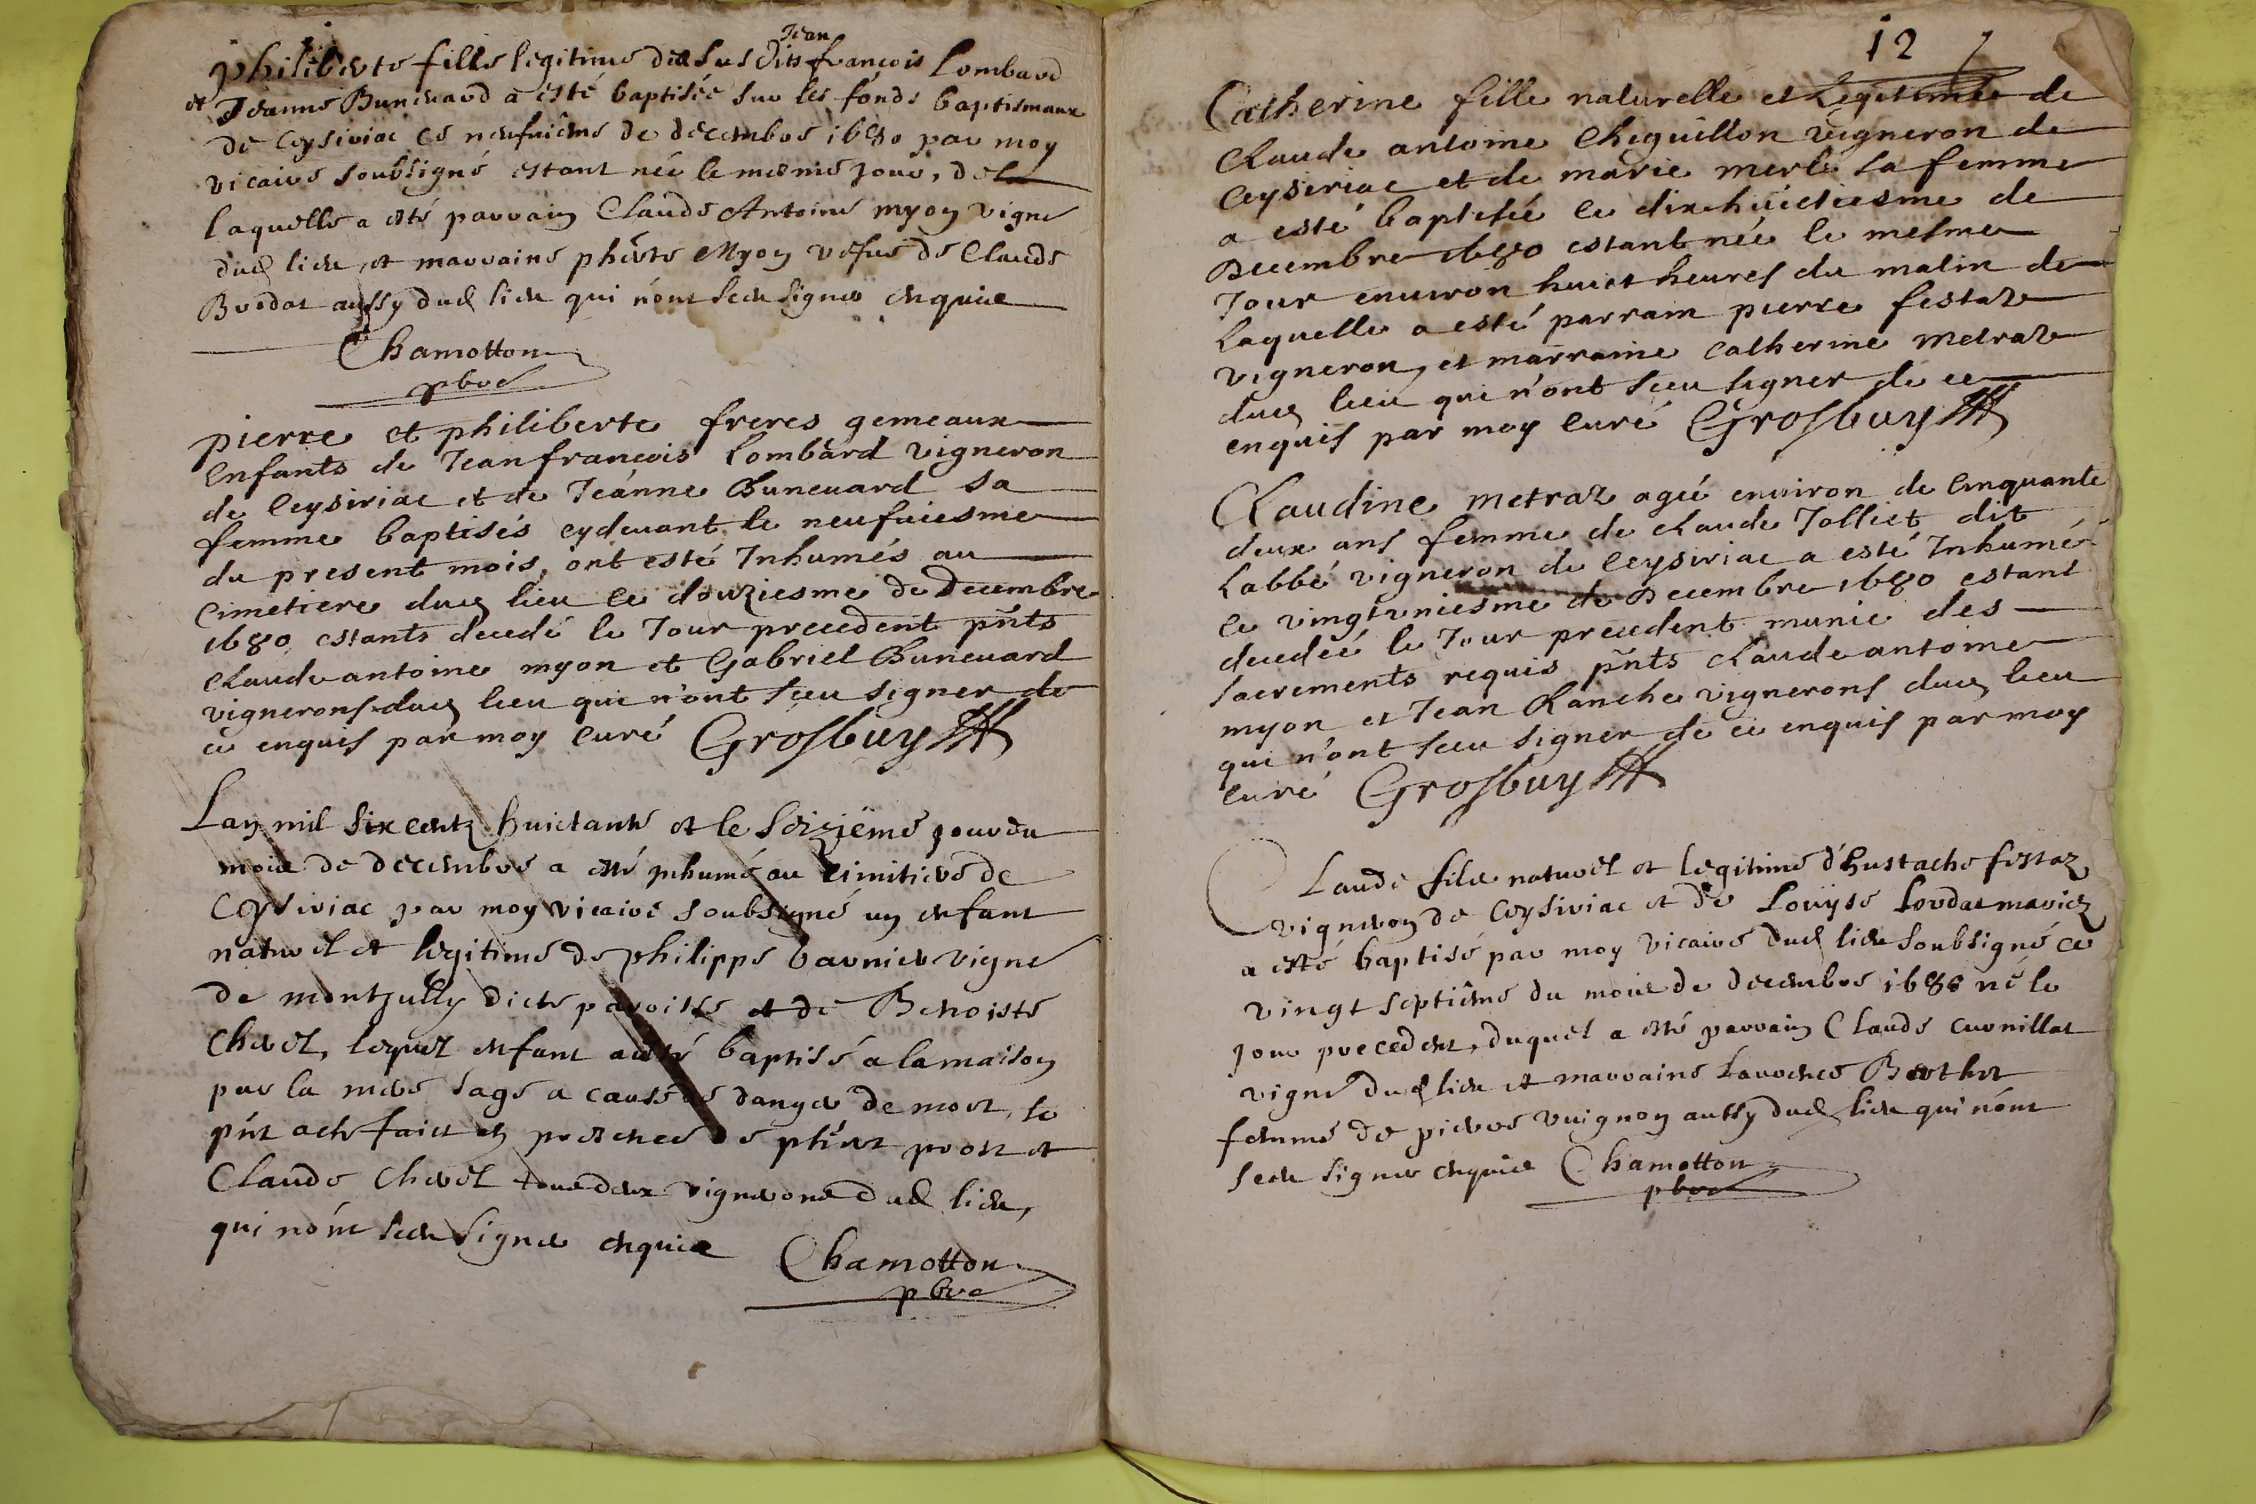 Jean
philiberte fille legitime des susdits françois Lombard
et Jeanne Bunevard a esté baptisée sur les fonds baptismaux
de Ceysiriac ce neufuieme de decembre 1680 par moy
vicaire soubsigné estant née le mesme jour, de
laquelle a esté parrain Claude Antoine myon vigne
dud lieu, et marraine phberte Myon vefue de Claude
Bordat aussy dud lieu qui n'ont sceu signer enquis
Chamotton
pbre
pierre et philiberte freres gemeaux
Enfants de Jeanfrancois Lombard vigneron
de Ceysiriac et de Jeánne Bunevard sa
femme baptisés cydevant le neufuiesme
du present mois, ont esté Inhumés au
Cimetiere dud lieu ce douziesme de Decembre
1680 estants decedé le Jour precedent pñts
Claude antoine myon et Gabriel Bunevard
vignerons dud lieu qui n'ont sceu signer de
ce enquis par moy Curé Grosbuy
Lan mil six centz huictante et le seizième jour du
mois de decembre a esté inhumé au cimitiere de
Ceysiriac par moy vicaire soubsigné un enfant
naturel et legitime de philippe varnier vigne
de montjully dicte paroisse et de Benoiste
Chevel, lequel enfant a esté baptisé a la maison
par la mere sage a cause de danger de mort, le
pñt acte faict en presence de phbert prost et
Claude Chevel tous deux vignerons dud lieu,
qui n'ont sceu signer enquis Chamotton
pbre
12
Catherine fille naturelle et Legitimée de
Claude antoine Cheguillon vigneron de
Ceysiriac et de marie merle sa femme
a esté baptisée le dixhuictiesme de
Decembre 1680 estant née le mesme
Jour environ huict heures du matin de
Laquelle a esté parrain pierre festaz
vigneron, et marraine Catherine metraz
dud lieu qui n'ont sceu signer de ce
enquis par moy Curé Grosbuy
Claudine metraz ageé environ de Cinquante
deux ans femme de Claude Jolliet dit
Labbé vigneron de Ceysiriac a esté Inhumé
le vingtuniesme de Decembre 1680 estant
decedeé le Jour precedent munie des
sacrements requis pñts Claude antoine
myon et Jean Ranche vignerons dud lieu
qui n'ont sceu signer de ce enquis par moy
Curé Grosbuy
Claude fils naturel et legitime d'hustache festaz
vigneron de Ceysiriac et de Louyse Lordat mariez
a esté baptisé par moy vicaire dud lieu soubsigné ce
vingt septième du mois de decembre 1680 né le
jour precedent, duquel a esté parrain Claude curnillat
vigne dud lieu et marraine Laurence Berthet
femme de pierre vuignon aussy dud lieu qui n'ont
sceu signer enquis Chamotton
pbre